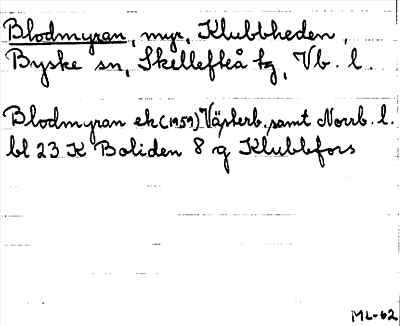 Blodmyran, myr, Klubbheden,
Byske sn, Skellefteå tg, Vb. l.
Blodmyran ek (1959) Västerb. samt Norrb. l.
bl 23 K Boliden 8 g Klubbfors
ML-62